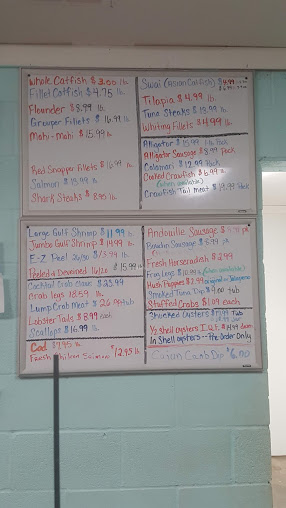 Whole Catfish $3.00 lb.
Fillet Catfish $4.75 lb.
Flounder $8.99 lb.
Grouper Fillets $16.99 lb.
Mahi-Mahi $15.99 lb.
Red Snapper Fillets $16.99 lb.
Salmon $13.99 lb.
Shark Steaks $8.95 lb.
Swai (Asian Catfish)
Tilapia $4.99 lb.
Tuna Steaks $13.99 lb.
Whiting Fillets $4.99 lb.
Alligator $15.99 1-lb Pack
Alligator Sausage $8.99 Pack
Calamari $12.99 Pack
Cooked Crawfish $6.99 lb
(when available)
Crawfish Tail Meat $19.99 Pack
Large Gulf Shrimp $11.99 lb.
Jumbo Gulf Shrimp $14.99 lb.
E-Z Peel 26/30 $13.99 lb.
Peeled & Deveined 16/20 $15.99 lb
Cocktail Crab claws $23.99
Crab legs 18.59 lb.
Lump Crab Meat $26.99 tub
Lobster Tails $8.99 each
Scallops $16.99 lb
Cod $9.95 lb
Fresh Chilean Salmon $12.95 lb
Andouille Sausage pk
Boudin Sausage $5.99 pk
Fresh Horseradish $2.99
Frog Legs $10.99 (when available)
Hush Puppies $2.99 Jalapeno
Smoked Tuna Dip $9.00 tub
Stuffed Crabs $1.09 each
Shucked Oysters Tub
1/2 shell oysters I.Q.F. $14.99 dozen
In Shell oysters--Pre Order Only
Cajun Crab Dip $6.00